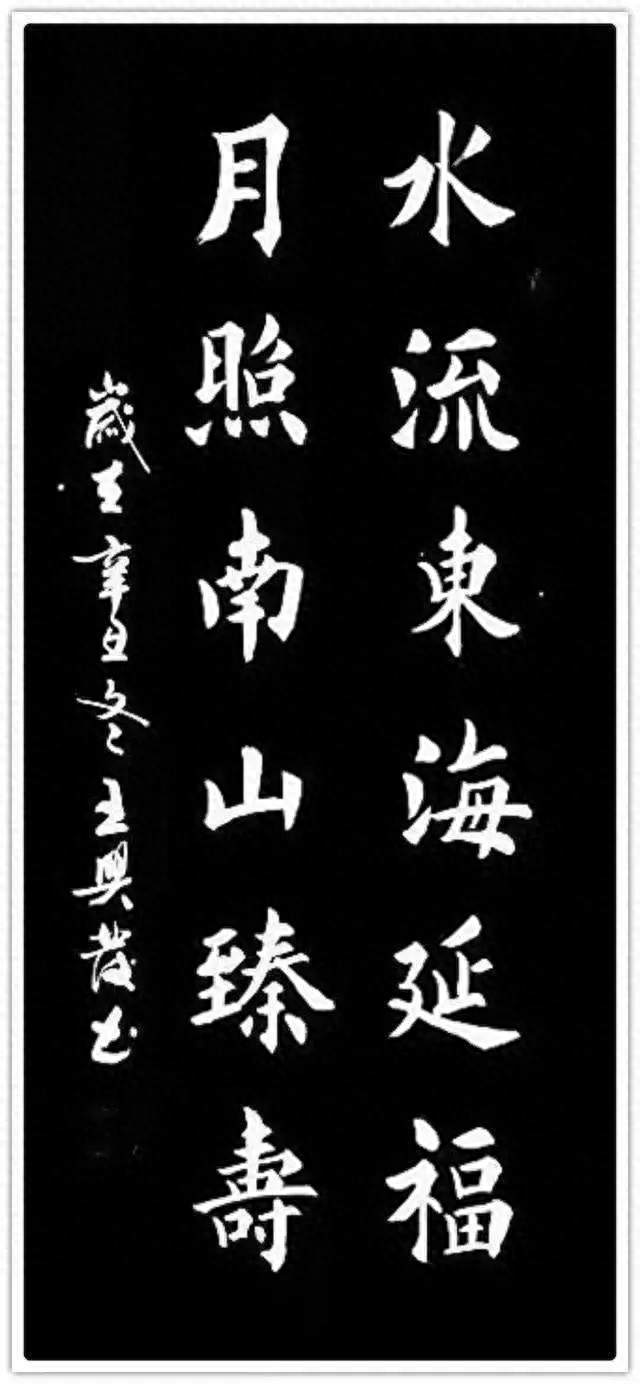 水流東海延福
月照南山臻壽
歲在辛丑冬王興發书